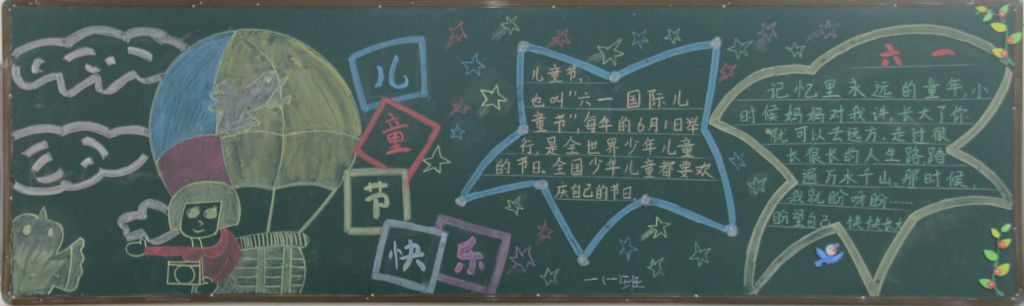 儿
童
节
快
乐
儿童节,
也叫"六一国际儿
童节",每年的6月1日举
行,是全世界少年儿童
的节日。全国少年儿童都要欢
庆自己的节日。
六一
记忆里永远的童年,小
时候妈妈对我讲,长大了你
就可以去远方,走过很
长很长的人生路,踏
遍万水千山。那时候,
我就盼呀盼……
盼望自己快快长大